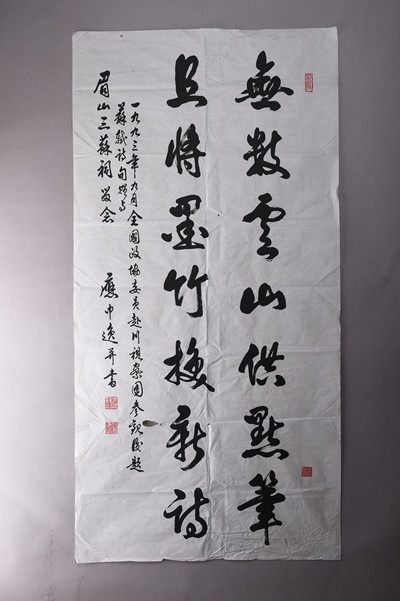 無數雲山供點筆
且將墨竹換新詩
一九九三年九月全國政協委員赴川視察團參觀後題
蘇軾詩句贈與
眉山三蘇祠留念
應中逸并書